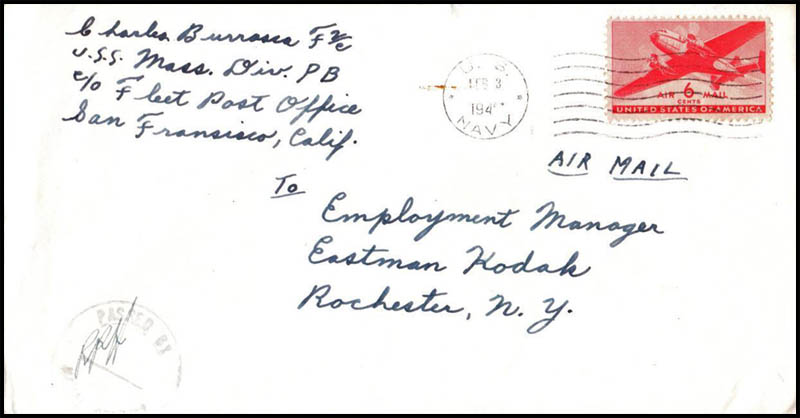 Charles Burrosca F 2/c
U.S.S. Mass. Div. PB
c/o Fleet Post Office
San Fransisco, Calif.
U. S.
FEB 3
194
NAVY
AIR 6 MAIL
CENTS
UNITED STATES OF AMERICA
AIR MAIL
To
Employment Manager
Eastman Kodak
Rochester, N. Y.
PASSED BY